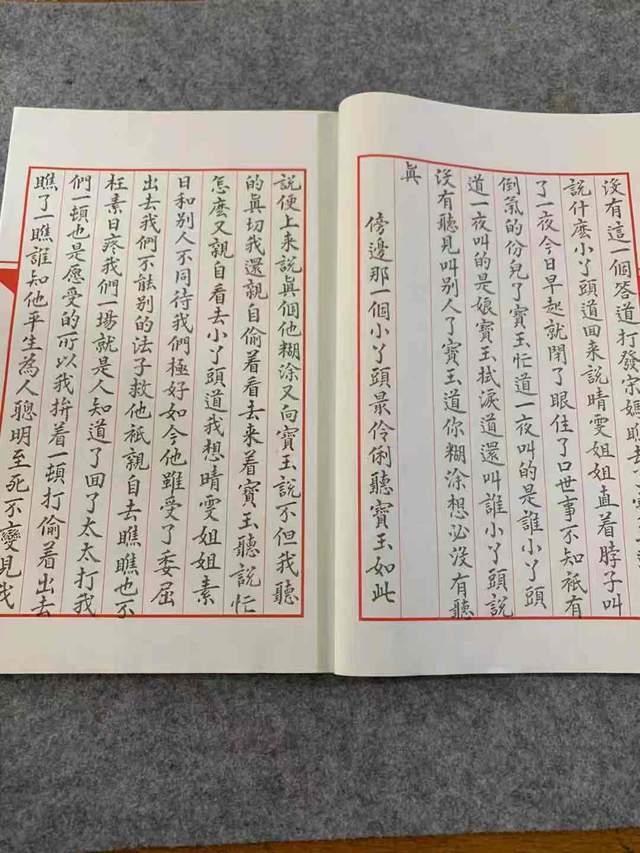 沒有這一個答道打發宋媽瞧去
說什麽小丫頭道回來說晴雯姐姐直着脖子叫
了一夜今日早起就閉了眼住了口世事不知衹有
倒氣的份兒了寶玉忙道一夜叫的是誰小丫頭
道一夜叫的是娘寶玉拭淚道還叫誰小丫頭說
沒有聽見叫別人了寶玉道你糊塗想必沒有聽
眞
傍邊那一個小丫頭最伶俐聽寶玉如此
說便上來說眞個他糊塗又向寶玉說不但我聽
的眞切我還親自偷着看去來着寶玉聽說忙
怎麽又親自看去小丫頭道我想晴雯姐姐素
日和別人不同待我們極好如今他雖受了委屈
出去我們不能別的法子救他衹親自去瞧瞧也不
枉素日疼我們一場就是人知道了回了太太打我
們一頓也是應受的所以我拚着一頓打偷着出去
瞧了一瞧誰知他平生為人聰明至死不變見我